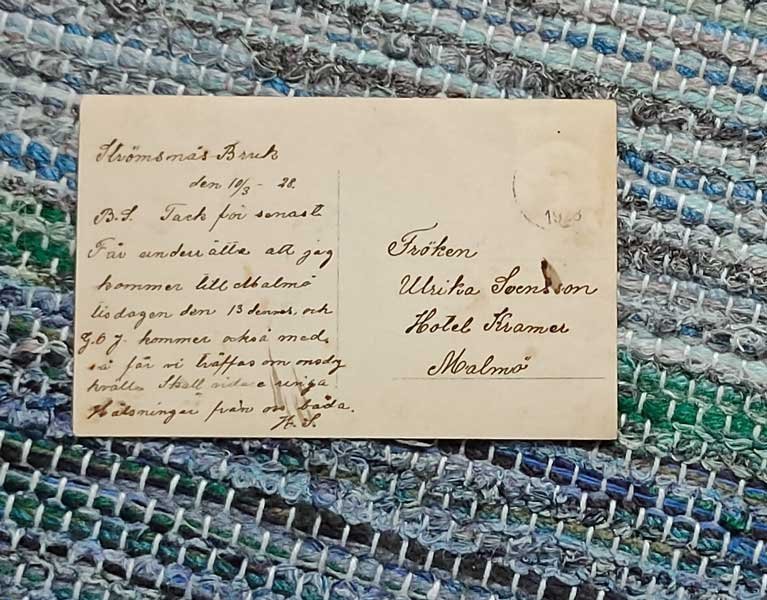 Strömsnäs Bruk
den 10/3 - 28.
B.S. Tack för senast
Får underrätta att jag
kommer till Malmö
tisdagen den 13 dennes, och
G.O J. kommer också med,
så får vi träffas om onsdag
kväll. Skall vidare ringa
Hälsningar från oss båda.
H. S.
Fröken
Ulrika Svensson
Hotel Kramer
Malmö